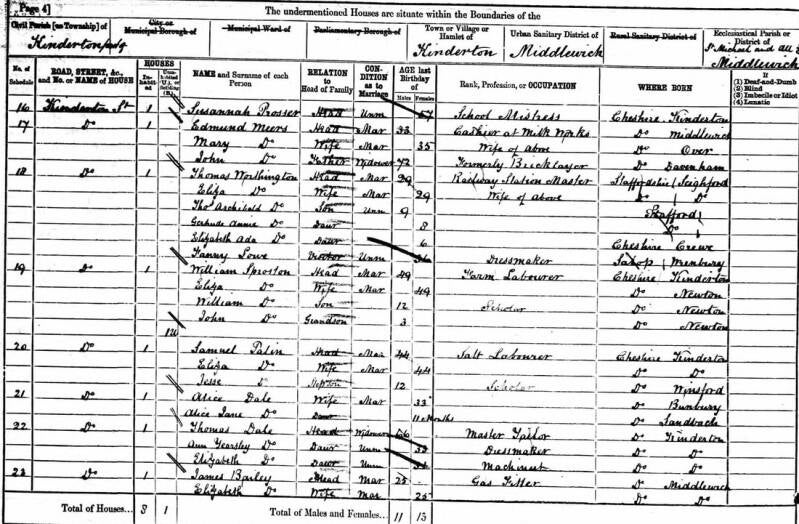 Page 4]
The undermentioned Houses are situate within the Boundaries of the
Civil Parish [or Township] of
City or Municipal Borough of
Municipal Ward of
Parliamentary Borough of
Town or Village or Hamlet of
Urban Sanitary District of
Rural Sanitary District of
Ecclesiastical Parish or District of
Kinderton
Kinderton
Middlewich
St Michael and All
Middlewich
No. of Schedule
ROAD, STREET, &c., and No. or NAME of HOUSE
HOUSES
Inhabited
NAME and Surname of each Person
RELATION to Head of Family
CONDITION as to Marriage
AGE last Birthday of
Males
Females
Rank, Profession, or OCCUPATION
WHERE BORN
If
(1) Deaf-and-Dumb
(2) Blind
(3) Imbecile or Idiot
(4) Lunatic
16 Kinderton St 1 Susannah Prosser Head Unm 57 School Mistress Cheshire Kinderton
17 Do 1 Edmund Meers Head Mar 33 Cashier at Milk Works Do Middlewich
Mary Do Wife Mar 35 Wife of above Do Over
John Do Father Widower 72 Formerly Bricklayer Do Davenham
18 Do 1 Thomas Worthington Head Mar 29 Railway Station Master Staffordshire Seighford
Eliza Do Wife Mar 29 Wife of above Do Do
Thos Archibald Do Son Unm 9 Stafford
Gertrude Annie Do Daur 8 Do
Elizabeth Ada Do Daur 6 Cheshire Crewe
Fanny Lowe Visitor Unm Dressmaker Salop
19 Do 1 William Sproston Head Mar 49 Farm Labourer Cheshire Kinderton
Eliza Do Wife Mar 49 Do Newton
William Do Son 12 Scholar Do Newton
John Do Grandson 3 Do Newton
20 Do 1 Samuel Palin Head Mar 44 Salt Labourer Cheshire Kinderton
Eliza Do Wife Mar 44 Do Do
Jesse Do Stepson 12 Scholar Do Winsford
21 Do 1 Alice Dale Wife Mar 33 Do Bunbury
Alice Jane Do Daur 11 Months Do Sandbach
22 Do 1 Thomas Dale Head Widower 66 Master Tailor Do Kinderton
Ann Yearsley Do Daur Unm Dressmaker Do Do
Elizabeth Do Daur Unm Machinist Do Do
23 Do 1 James Bayley Head Mar 25 Gas Fitter Do Middlewich
Elizabeth Do Wife Mar 25 Do Do
Total of Houses... 8 1
Total of Males and Females... 11 13